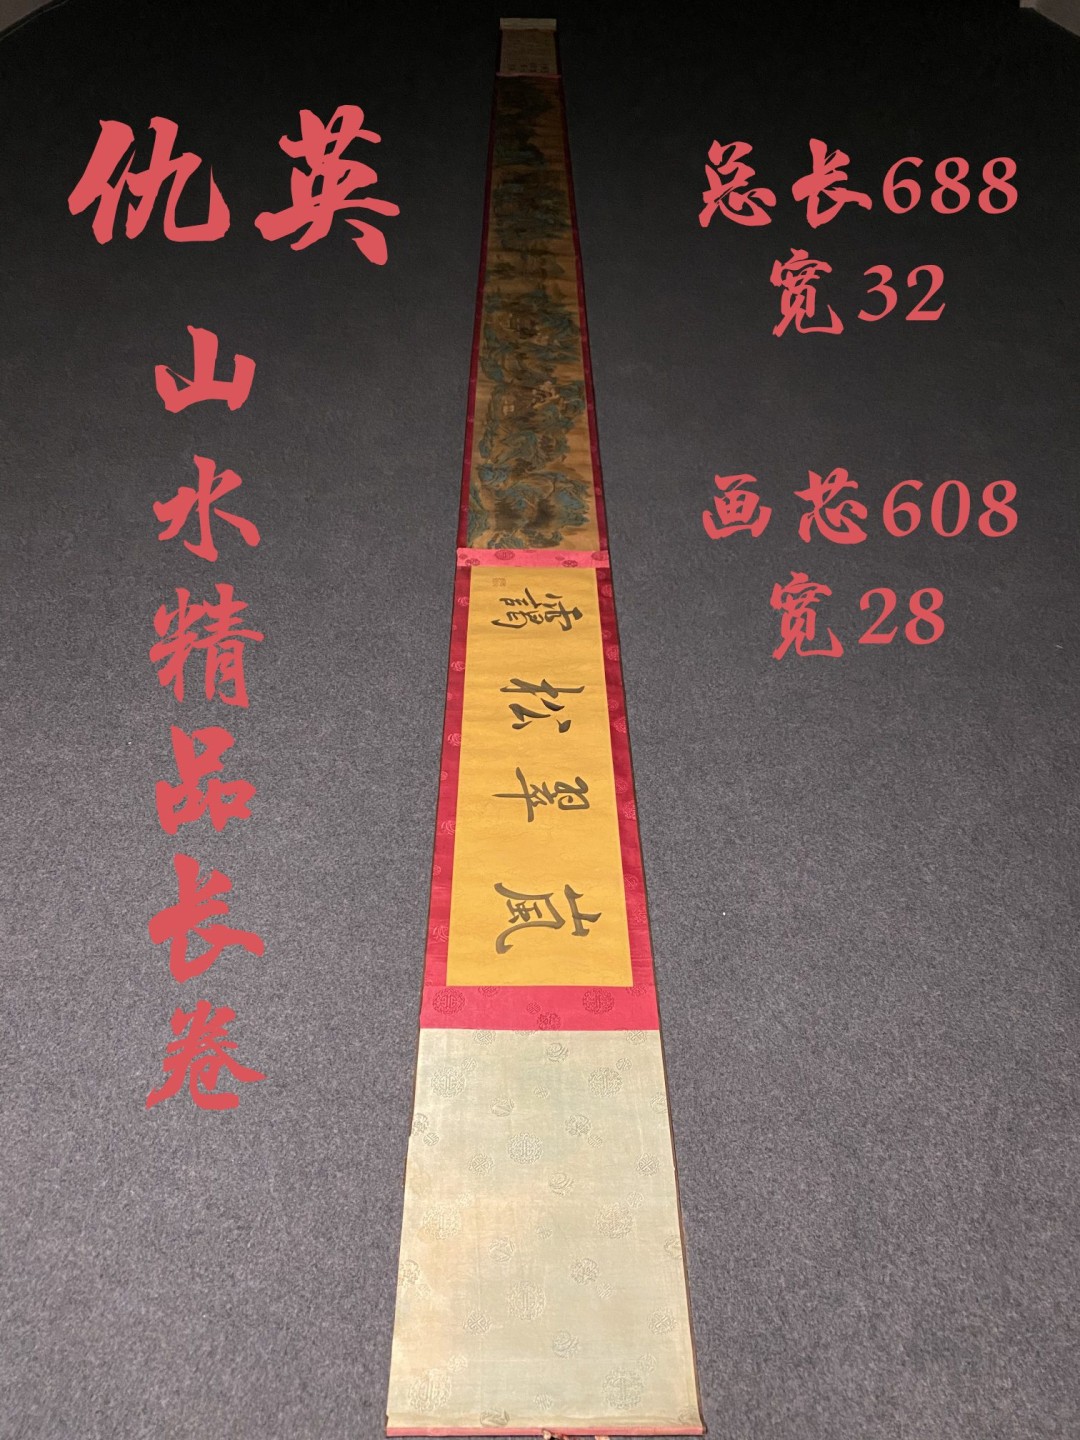 仇英
山水精品长卷
总长688
宽32
画芯608
宽28
嵐翠松靄